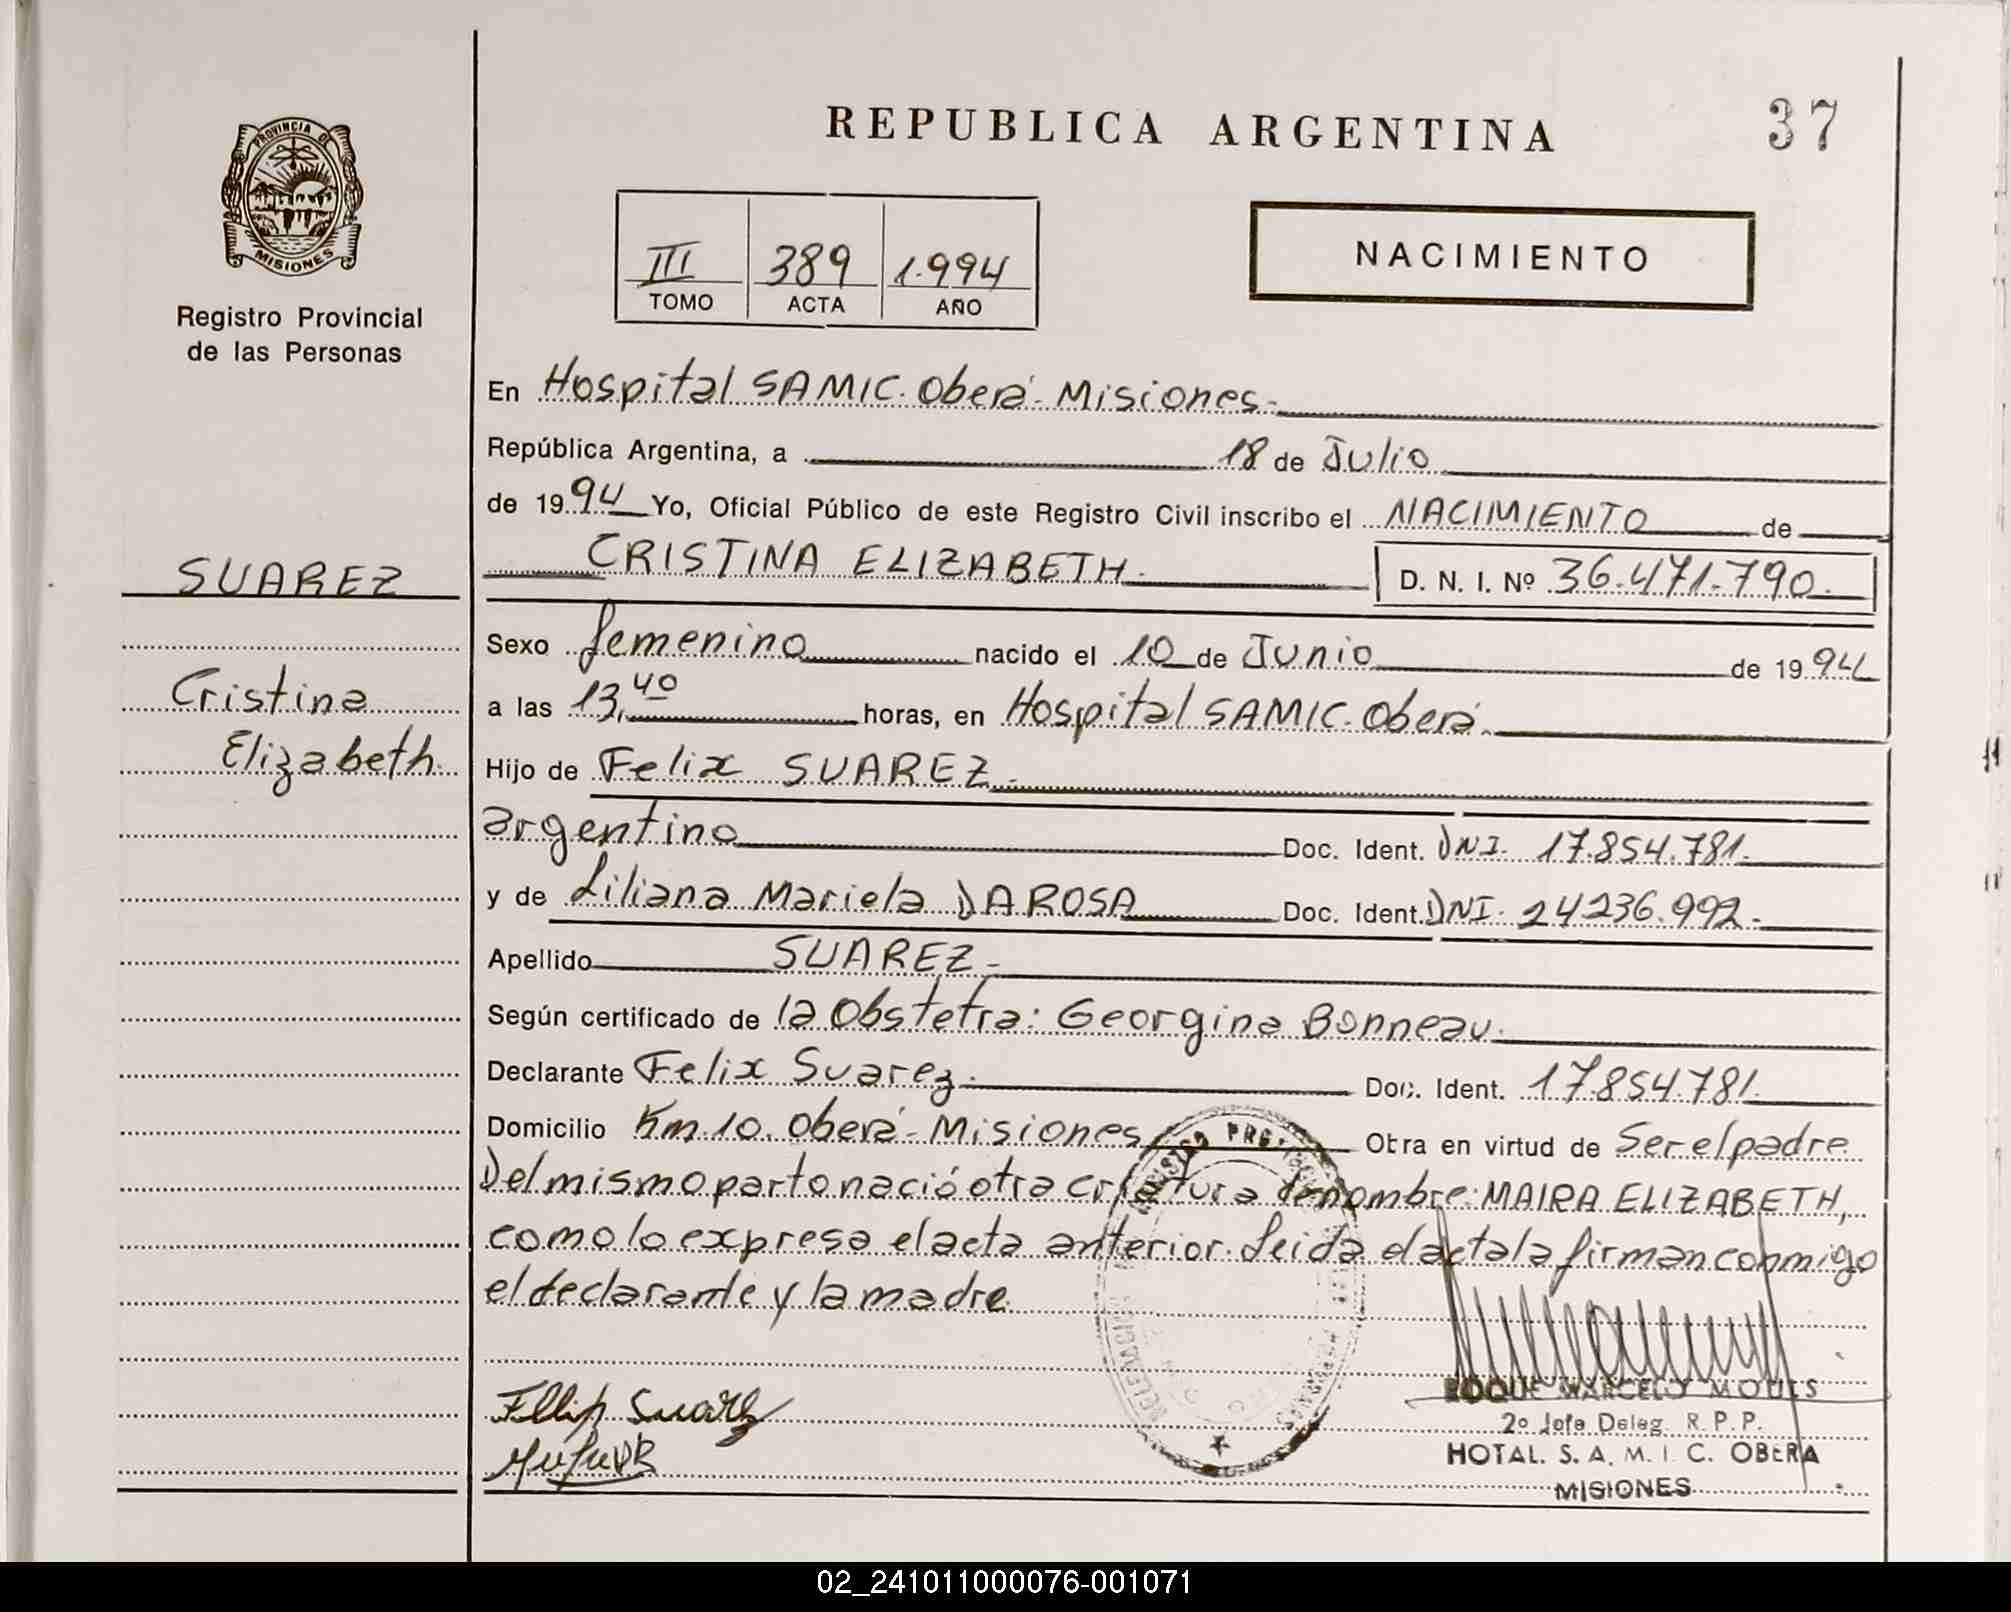 REPUBLICA ARGENTINA
37
PROVINCIA DE
MISIONES
Registro Provincial
de las Personas
III 389 1.994
TOMO ACTA AÑO
NACIMIENTO
En Hospital SAMIC. Oberá - Misiones -
República Argentina, a 18 de Julio
de 1994 Yo, Oficial Público de este Registro Civil inscribo el NACIMIENTO de
CRISTINA ELIZABETH. D. N. I. Nº 36.471.790.
SUAREZ
Cristina
Elizabeth.
Sexo femenino nacido el 10 de Junio de 1994
a las 13,40 horas, en Hospital SAMIC. Oberá.
Hijo de Felix SUAREZ.
argentino Doc. Ident. DNI. 17.854.781.
y de Liliana Mariela DA ROSA Doc. Ident. DNI. 24236.992.
Apellido SUAREZ -
Según certificado de la Obstetra: Georgina Bonneau.
Declarante Felix Suarez. Doc. Ident. 17.854.781.
Domicilio Km 10. Oberá - Misiones Otra en virtud de Ser el padre.
Del mismo parto nació otra criatura de nombre: MAIRA ELIZABETH,
como lo expresa el acta anterior. Leida el acta la firman conmigo
el declarante y la madre.
Suarez
ROQUE MARCELO
2º Jefe Deleg. R. P. P.
HOTAL. S. A. M. I. C. OBERA
MISIONES
02_241011000076-001071